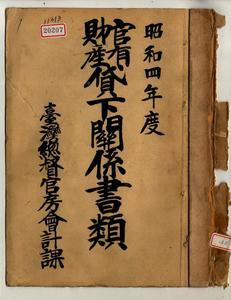 昭和四年度
官有財產貸下關係書類
臺灣總督官房會計課
20207